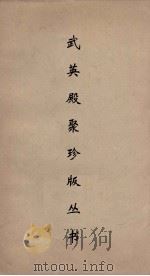 武英殿聚珍版丛书
mtoou.info mtoou.info